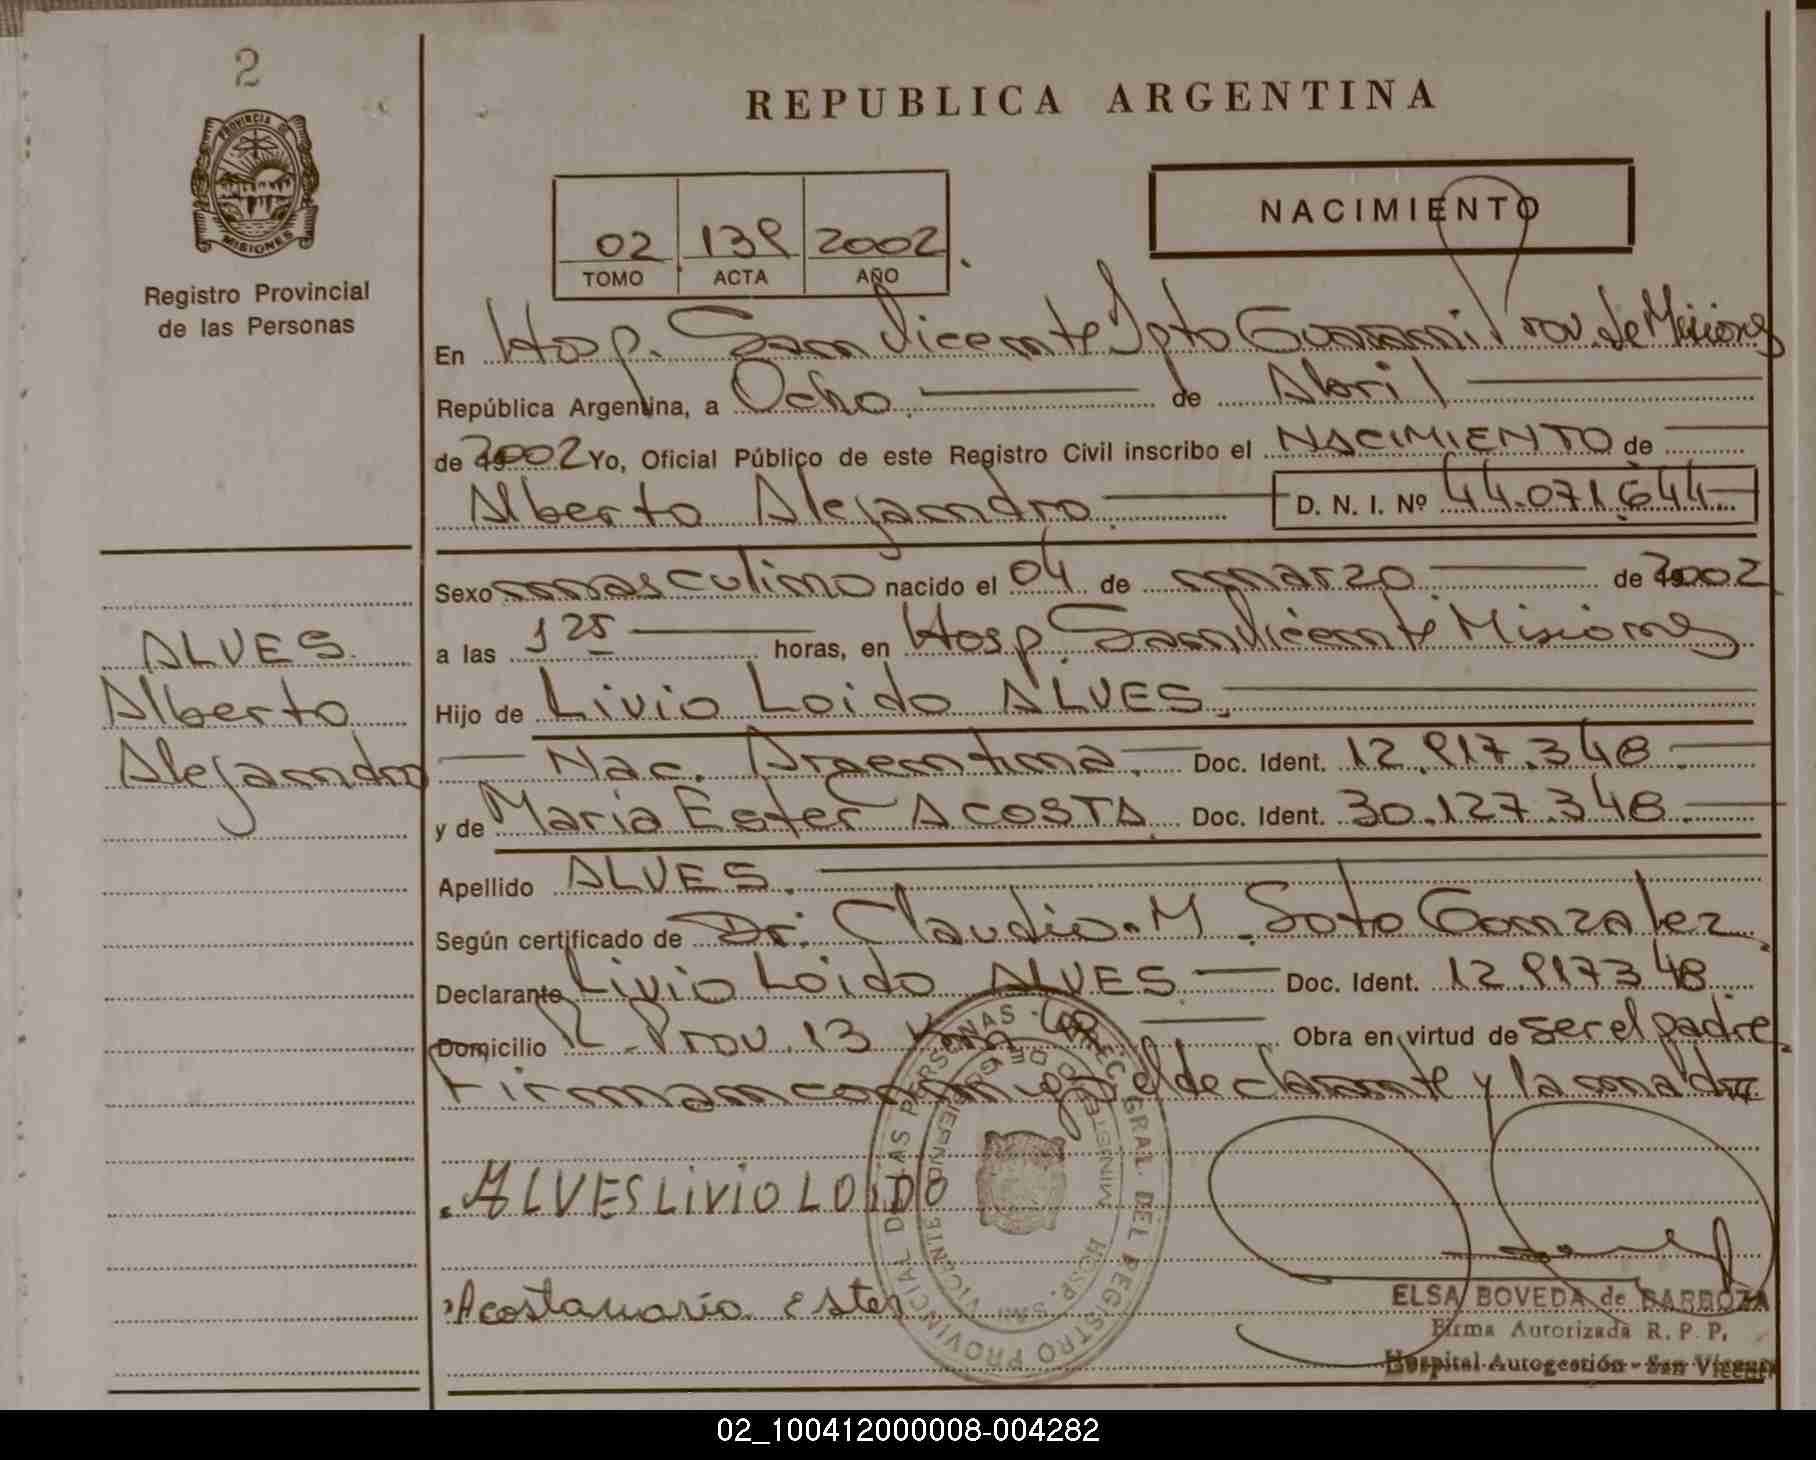 2
PROVINCIA DE
MISIONES
Registro Provincial
de las Personas
REPUBLICA ARGENTINA
02 139 2002
TOMO ACTA AÑO
NACIMIENTO
En Hosp. San Vicente Dpto Guarani Prov. de Misiones
República Argentina, a Ocho de Abril
de 2002 Yo, Oficial Público de este Registro Civil inscribo el NACIMIENTO de
Alberto Alejandro D. N. I. Nº 44.071.644
Sexo masculino nacido el 04 de marzo de 2002
a las 1 25 horas, en Hosp. San Vicente Misiones
Hijo de Livio Loido ALVES.
Nac. Argentina. Doc. Ident. 12.917.348
y de Maria Ester ACOSTA Doc. Ident. 30.127.348
Apellido ALVES.
Según certificado de Dr. Claudio M. Soto Gonzalez
Declarante Livio Loido ALVES Doc. Ident. 12.917348
Domicilio R. Prov. 13 Km Obra en virtud de ser el padre
Firman conmigo el declarante y la madre
ALVES
Alberto
Alejandro
ALVES LIVIO LOIDO
Acosta maria Ester
DIREC. GRAL. DEL REGISTRO PROVINCIAL DE LAS PERSONAS
MINISTERIO DE GOBIERNO
HOSP. SAN VICENTE
ELSA BOVEDA de BARBOZA
Firma Autorizada R. P. P.
Hospital Autogestión - San Vicente
02_100412000008-004282